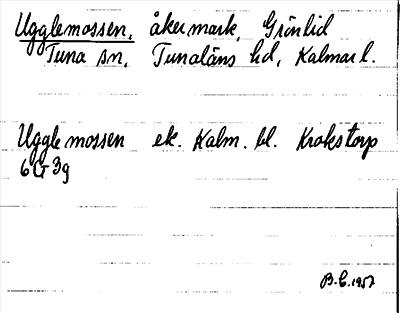 Ugglemossen, åkermark, Grönlid
Tuna sn, Tunaläns hd, Kalmar l.
Ugglemossen ek. Kalm. bl. Krokstorp
6G 3g
B.C. 1957